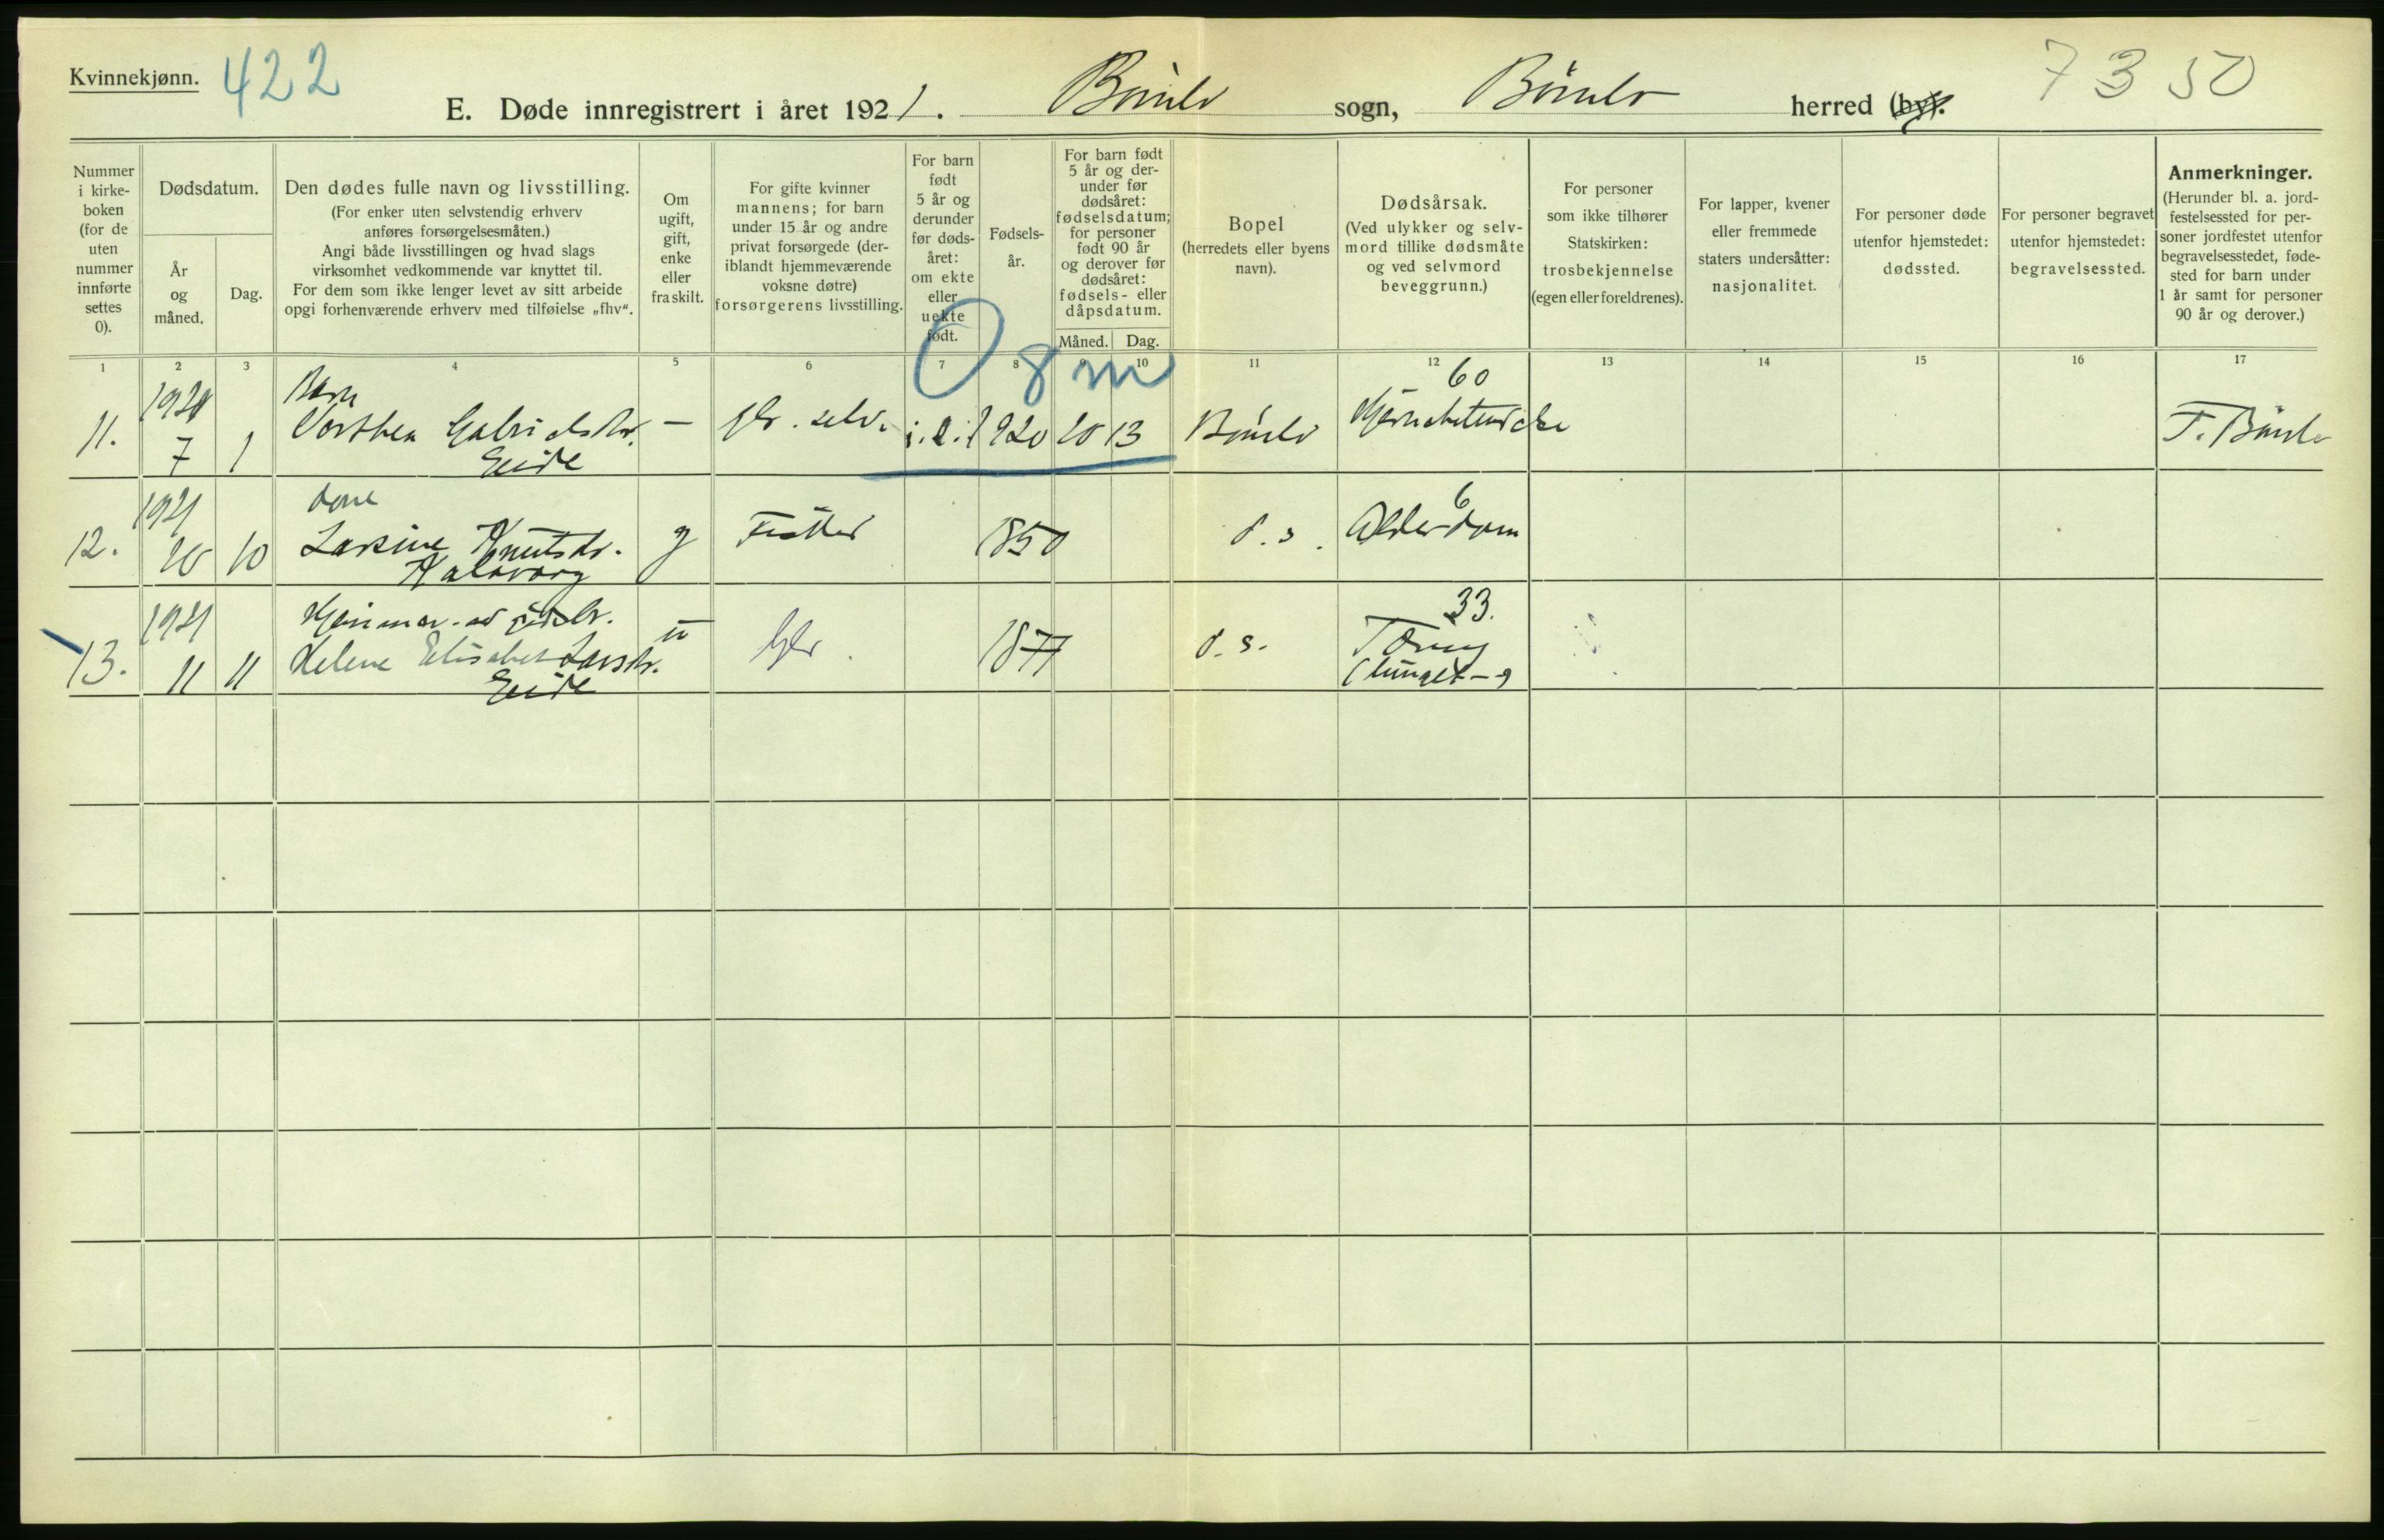 Kvinnekjønn. 422
E. Døde innregistrert i året 1921. Bømlo sogn, Bømlo herred (by). 7350
Nummer
i kirke-
boken
(for de
uten
nummer
innførte
settes
0).
Dødsdatum.
År
og
måned.
Dag.
Den dødes fulle navn og livsstilling.
(For enker uten selvstendig erhverv
anføres forsørgelsesmåten.)
Angi både livsstillingen og hvad slags
virksomhet vedkommende var knyttet til.
For dem som ikke lenger levet av sitt arbeide
opgi forhenværende erhverv med tilføielse „fhv“.
Om
ugift,
gift,
enke
eller
fraskilt.
For gifte kvinner
mannens; for barn
under 15 år og andre
privat forsørgede (der-
iblandt hjemmeværende
voksne døtre)
forsørgerens livsstilling.
For barn
født
5 år og
derunder
før døds-
året:
om ekte
eller
uekte
født.
Fødsels-
år.
For barn født
5 år og der-
under før
dødsåret:
fødselsdatum;
for personer
født 90 år
og derover før
dødsåret:
fødsels- eller
dåpsdatum.
Måned. Dag.
Bopel
(herredets eller byens
navn).
Dødsårsak.
(Ved ulykker og selv-
mord tillike dødsmåte
og ved selvmord
beveggrunn.)
For personer
som ikke tilhører
Statskirken:
trosbekjennelse
(egen eller foreldrenes).
For lapper, kvener
eller fremmede
staters undersåtter:
nasjonalitet.
For personer døde
utenfor hjemstedet:
dødssted.
For personer begravet
utenfor hjemstedet:
begravelsessted.
Anmerkninger.
(Herunder bl. a. jord-
festelsessted for per-
soner jordfestet utenfor
begravelsesstedet, føde-
sted for barn under
1 år samt for personer
90 år og derover.)
1 2 3 4 5 6 7 8 9 10 11 12 13 14 15 16 17
0 8 m
1921 Barn 60
11. 7 1 Dorthea Gabrielsdtr. — gbr. selv. 1920 10 13 Bømlo F. Bømlo
Eide
1921 kone 6
12. 10 10 Larsine Knutsdr. g Fisker 1850 d. s. Alderdom
1921 33.
13. 11 11 Helene Elisabet Larsdr. u Gbr. 1877 d. s. Tæring
Eide (lunget-)